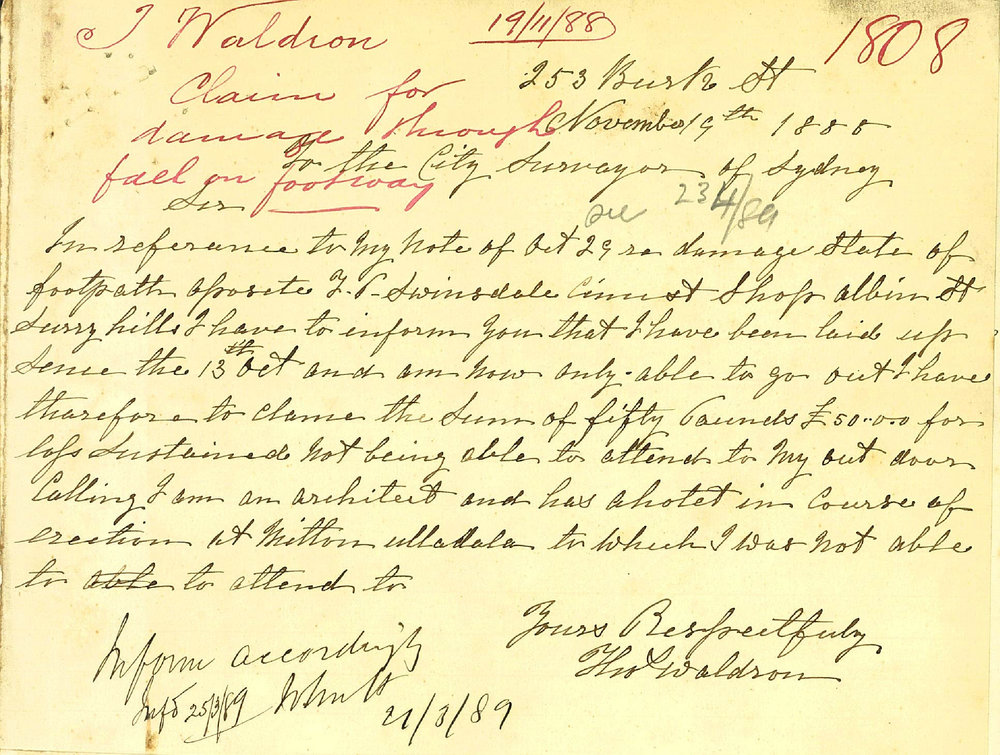 T Waldron
19/11/88
1808
Claim for
damage through
fall on footway
253 Burk St
November 19th 1888
To the City Surveyor of Sydney
Sir
see 234/89
In referance to My Note of Oct 29 re damage State of
footpath aposete T. P. Swinsdale Shop albin St
Surry hills I have to inform you that I have been laid up
sence the 13th Oct and am now only able to go out I have
tharefore to clame the Sum of fifty Paunds £50..0.0 for
loss Sustained Not being able to attend to My out door
Calling I am an architect and has a hotel in Course of
erection at Milton ulladala to which I was Not able
to able to attend to
Yours Respectfuly
Thos Waldron
Inform accordingly
Infd 25/3/89
21/3/89